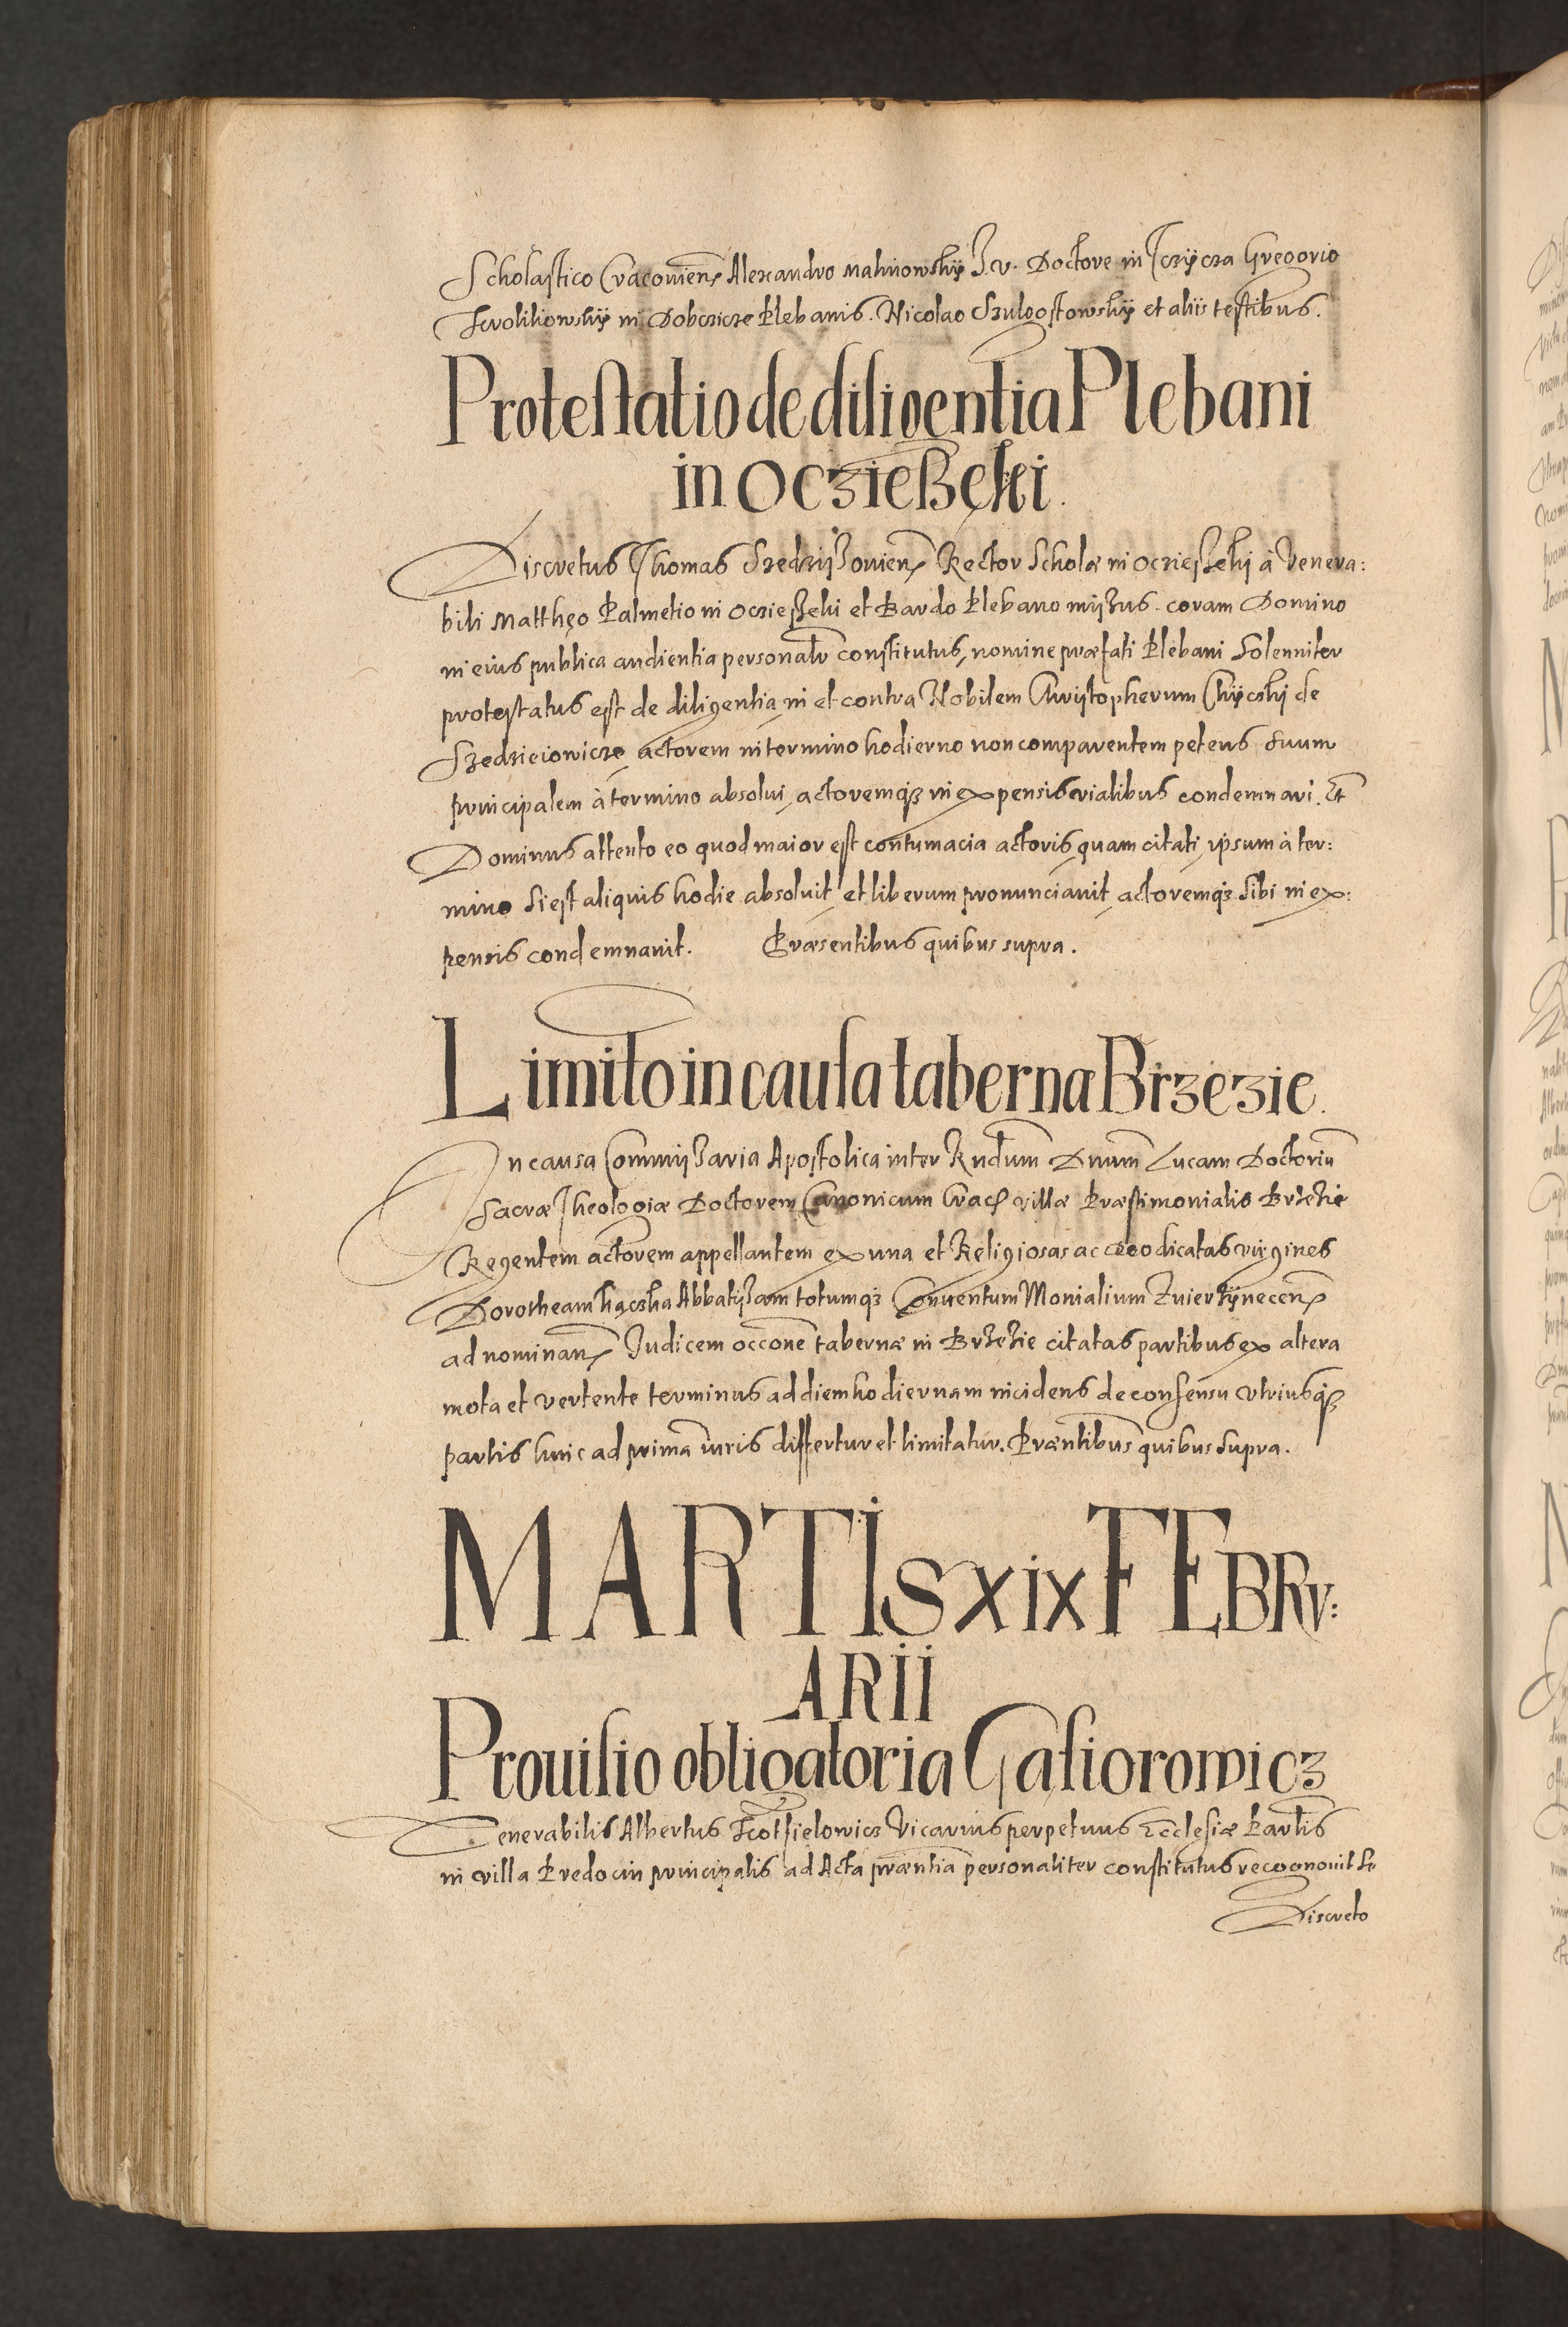 Scholastico Cracovien̄ Alexandro Malinowskÿ J.V. Doctore in Tczÿcza Gregorio
in Dobczicze Plebanis. Nicolao Szulgostowskÿ et aliis testibus.
Protestatio de diligentia Plebani
in Oczießęki.
Discretus Thomas Rector Scholæ in Oczießekÿ à Venera:
bili Matthęo Palmetio in Oczießeki et Bardo Plebano mißus. coram Domino
in eius publica audientia personalr̄ constitutus, nomine præfati Plebani Solenniter
protestatus est de diligentia in et contra Nobilem Christopherum Chÿcskÿ de
actorem in termino hodierno non comparentem petens suum
principalem à termino absolui, actoremq̨ in expensis vialibus condemnari. Et
Dominus attento eo quod maior est contumacia actoris quam citati, ipsum à ter:
mino si est aliquis hodie absoluit et liberum pronunciauit, actoremq̨ sibi in ex:
pensis condemnauit. Præsentibus quibus supra.
Limito in causa tabernæ Brzezie.
In causa Commißaria Apostolica inter Rndum̄ Dnum̄ Lucam Doctoriū
Sacræ Theologiæ Doctorem Canonicum Crac̄ villæ Præstimonialis Brzezie
Regentem actorem appellantem ex una et Religiosas ac Deo dicatas virgines
Dorotheam Abbatißam totumq̨ Conventum Monialium Zwierzÿnecen̄
ad nominan̄ Judicem occōne tabernæ in Brzezie citatas partibus ex altera
mota et vertente terminus ad diem hodiernam incidens de consensu utriusq̨
partis hinc ad primā iuris differtur et limitatur. Præntibus̄ quibus supra.
MARTIS XIX FEBRV:
ARII
Prouisio obligatoria Gasiorowicz
Venerabilis Albertus Vicarius perpetuus Ecclesiæ Parlis̄
in villa Predocin principalis ad Acta præntia̅ personaliter constitutus recognouit se
Discreto